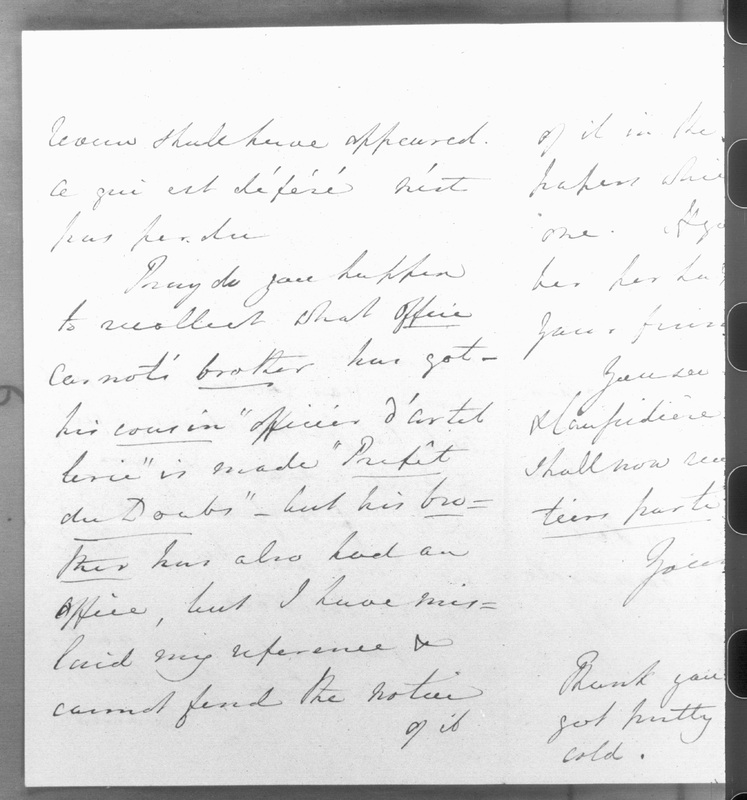 shall have appeared.
ce qui est déféré n'est
pas perdu
Pray do you happen
to recollect what office
Carnot's brother has got -
his cousin "officier d'artil
lerie" is made "Prefêt
du Doubs" - but his bro=
ther has also had an
office, but I have mis=
laid my reference &
cannot find the notice
of it
of it in the
papers
one.
her
Your
You see
& Caussidière
Shall now
tiers parti
Thank you
got pretty
cold.